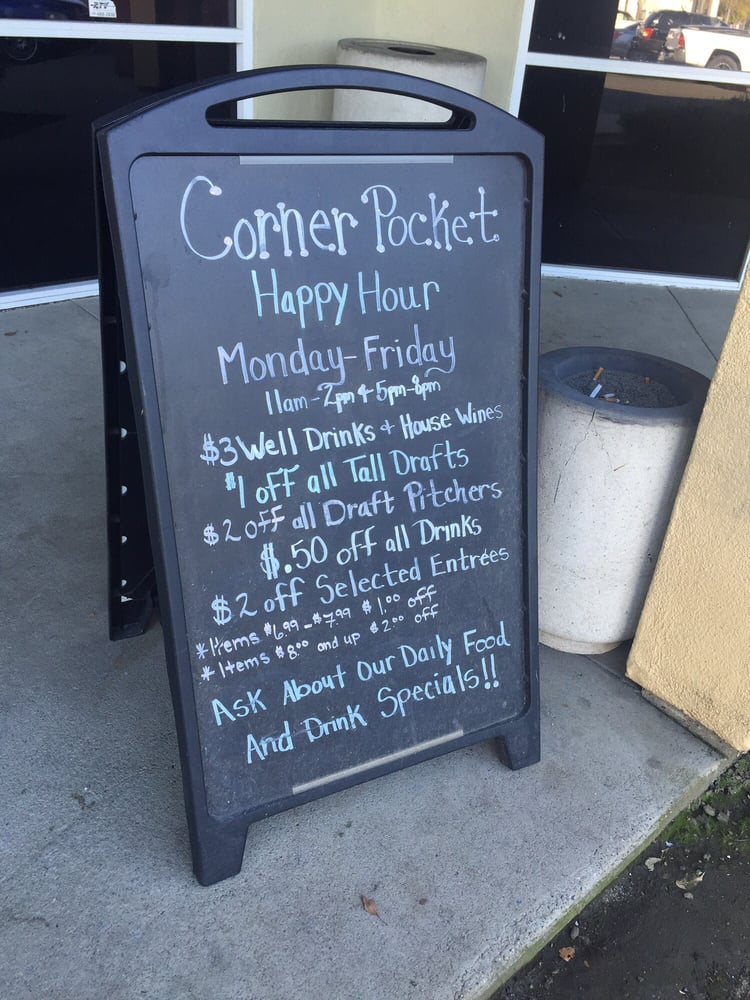 Corner Pocket
Happy Hour
Monday-Friday
11am-2pm & 5pm-8pm
$3 Well Drinks & House Wines
$1 off all Tall Drafts
$2 off all Draft Pitchers
$.50 off all Drinks
$2 off Selected Entrées
*Items $6.99-$7.99 $1.00 off
*Items $8.00 and up $2.00 off
Ask About Our Daily Food
And Drink Specials!!